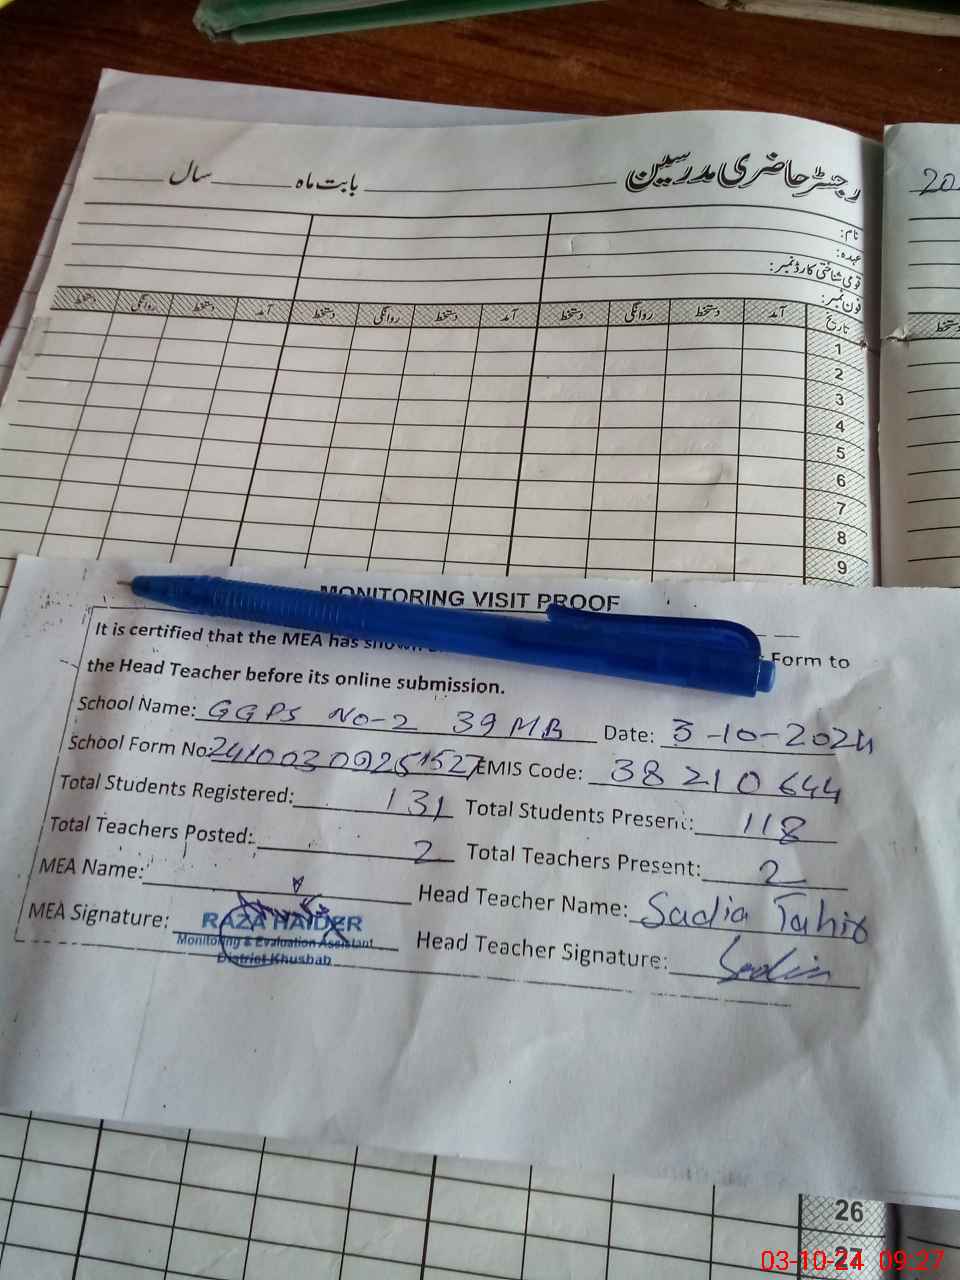 رجسٹر حاضری مدرسین ______ بابت ماہ ______ سال ______
20
نام:
عہدہ:
قومی شناختی کارڈ نمبر:
فون نمبر:
تاریخ آمد دستخط روانگی دستخط آمد دستخط روانگی دستخط آمد دستخط روانگی دستخط
1
2
3
4
5
6
7
8
9
MONITORING VISIT PROOF
It is certified that the MEA has shown Form to
the Head Teacher before its online submission.
School Name: GGPS No-2 39 MB Date: 3-10-2024
School Form No: 24100309251527 EMIS Code: 38210644
Total Students Registered: 131 Total Students Present: 118
Total Teachers Posted: 2 Total Teachers Present: 2
MEA Name: Head Teacher Name: Sadia Tahir
MEA Signature: RAZA HAIDER Head Teacher Signature: Sadia
Monitoring & Evaluation Assistant
District Khushab
26
27
03-10-24 09:27